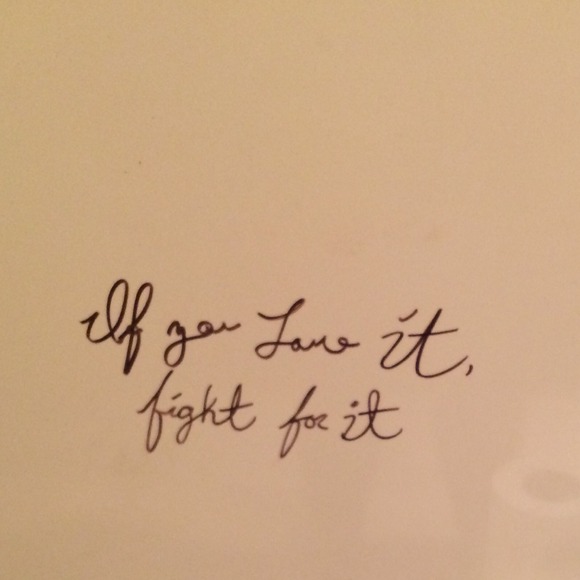 If you Love it,
fight for it